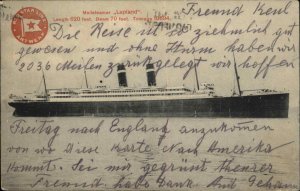 Mailsteamer "LAPLAND"
Length 620 feet. Beam 70 feet. Tonnage
Freund Keul
Die Reise ist so ziemlich gut
gewesen und ohne Sturm haben wir
2036 Meilen zurückgelegt wir hoffen
Freitag nach England anzukommen
von wo Diese Karte nach Amerika
kommt. Sei mir gegrüsst theurer
Freund hab Dank